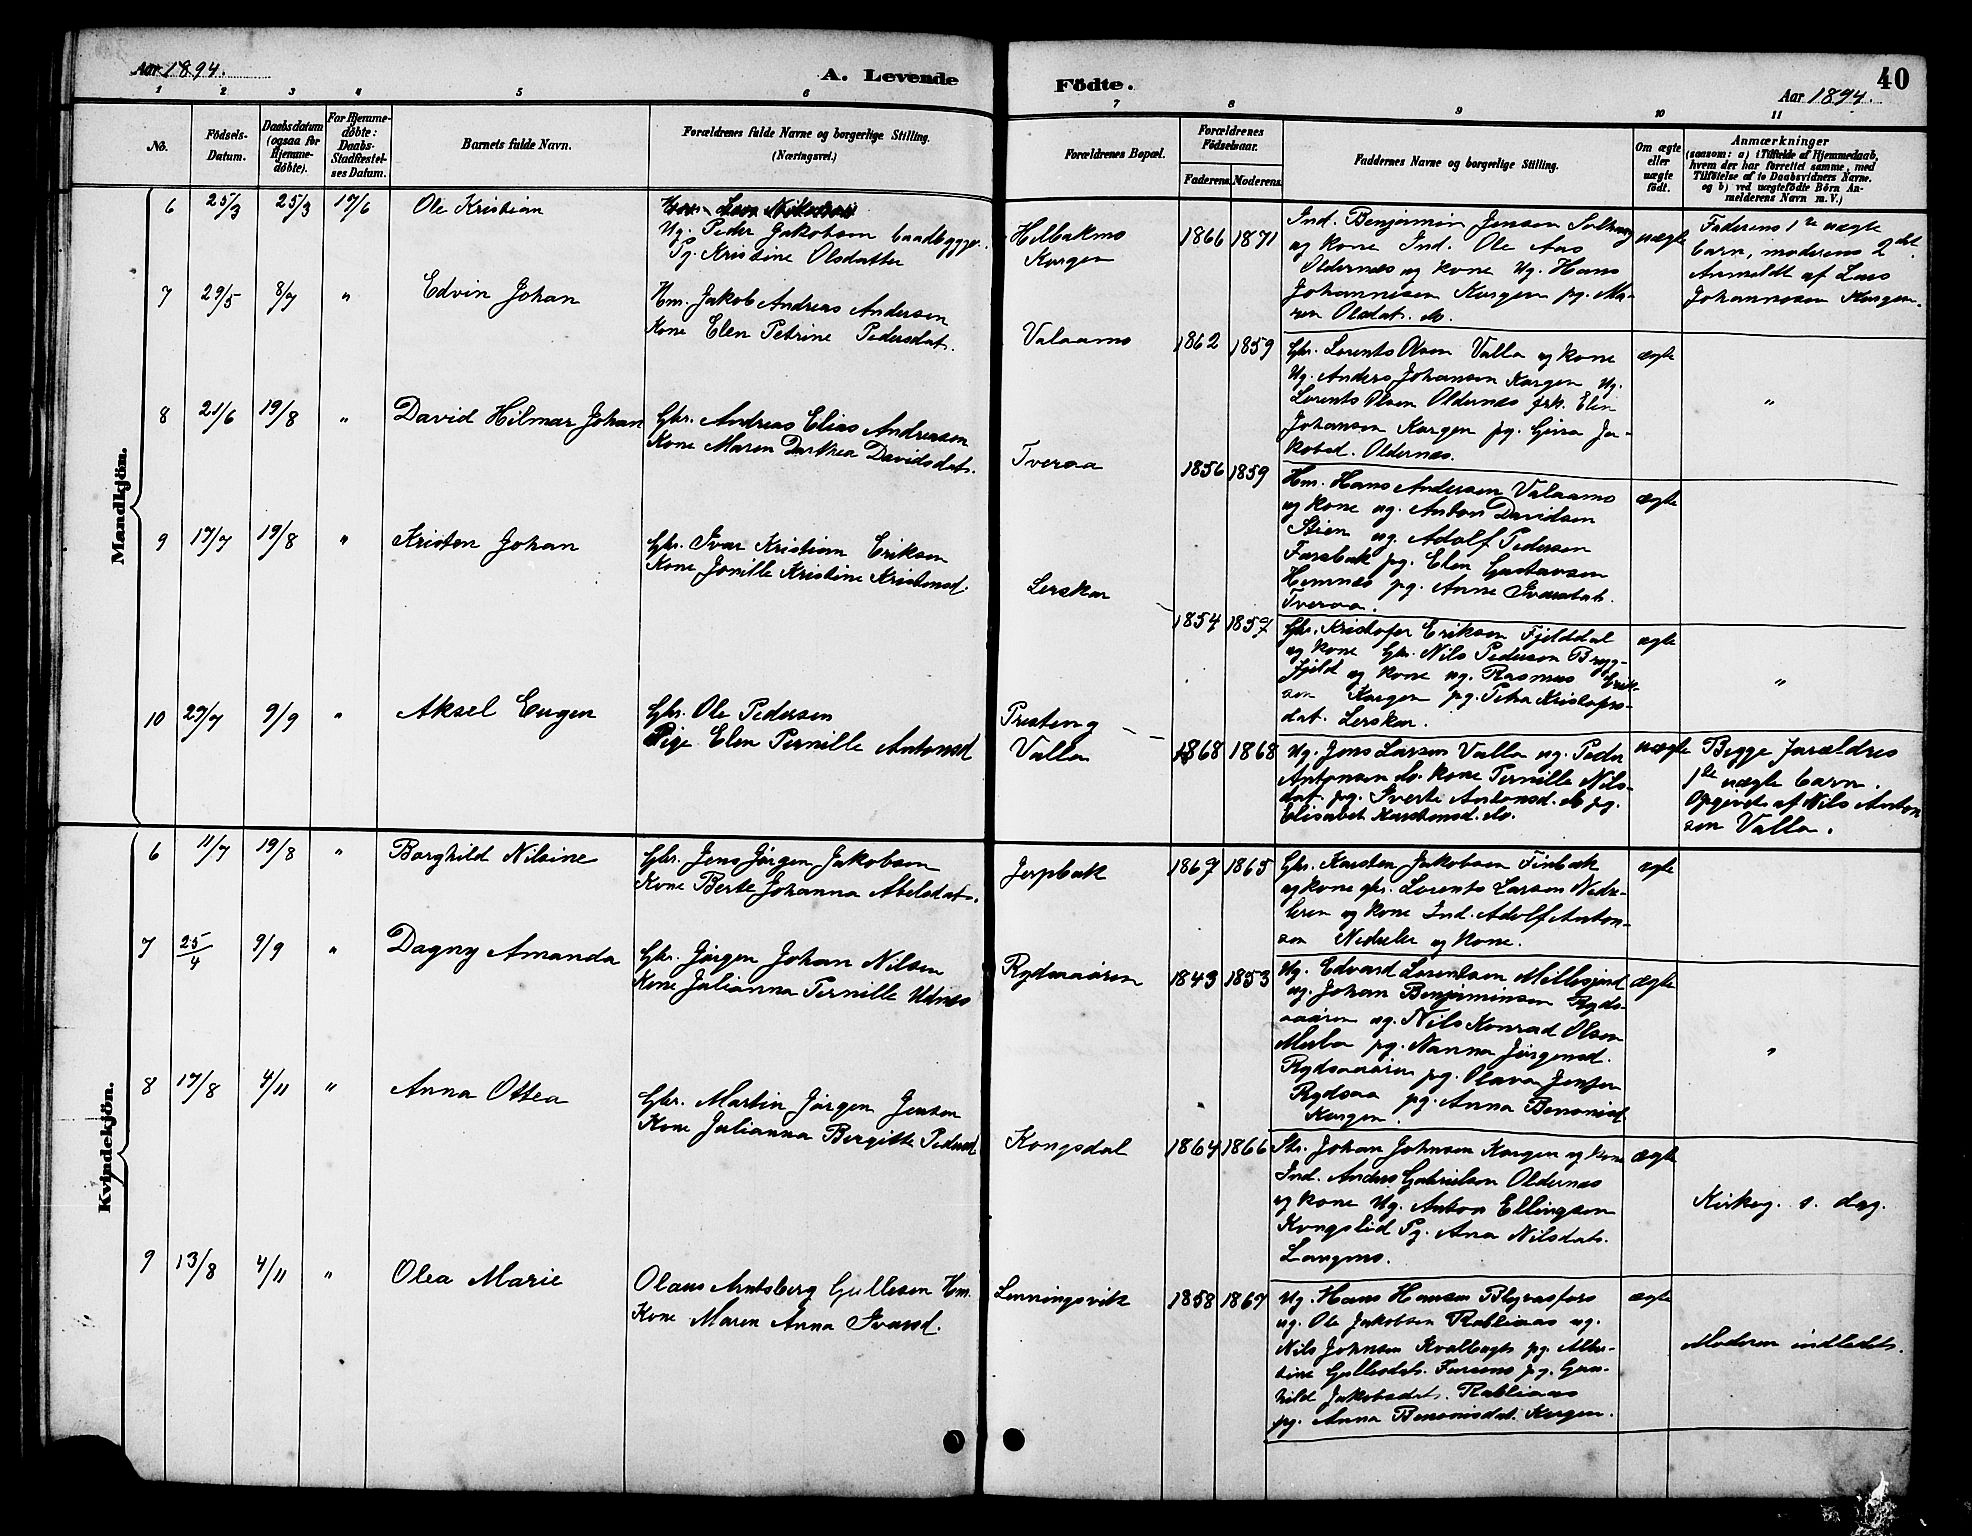 Aar 1894.
A. Levende
1 2 3 4 5 6
No.
Födsels-
Datum.
Daabsdatum
(ogsaa for
Hjemme-
döbte).
For Hjemme-
döbte:
Daabs-
Stadfæstel-
ses Datum.
Barnets fulde Navn.
Forældrenes fulde Navne og borgerlige Stilling.
(Næringsvei.)
Mandkjön.
6 25/3 25/3 17/6 Ole Kristian
Ug. Peder Jakobsen baadbygger.
Pg. Kristine Olsdatter
7 29/5 8/7 " Edvin Johan
Hm. Jakob Andreas Andersen
Kone Elen Petrine Pedersdat.
8 21/6 19/8 " David Hilmar Johan
Gbr. Andreas Elias Andreasen
Kone Maren Dorthea Davidsdat.
9 17/7 19/8 " Kristen Johan
Gbr. Ivar Kristian Eriksen
Kone Jonille Kristine Kristensd.
10 29/7 9/9 " Aksel Eugen
Gbr. Ole Pedersen
Pige Elen Pernille Antonsd
Kvindekjön.
6 11/7 19/8 " Borghild Nilsine
Gbr. Jens Jørgen Jakobsen
Kone Berte Johanna Abelsdat.
7 25/4 9/9 " Dagny Amanda
Gbr. Jørgen Johan Nilsen
Kone Julianna Pernille Utnes
8 17/8 4/11 " Anna Ottea
Gbr. Martin Jørgen Jensen
Kone Julianna Bergitte Pedersd
9 13/8 4/11 " Olea Marie
Olaus Arntsberg Gullesen Hm.
Kone Maren Anna Ivarsd.
Födte.
40
Aar 1894.
7 8 9 10 11
Forældrenes Bopæl.
Forældrenes
Födselsaar.
Faderens. Moderens.
Faddernes Navne og borgerlige Stilling.
Om ægte
eller
uægte
födt.
Anmærkninger
(saasom: a) i Tilfælde af Hjemmedaab,
hvem der har forrettet samme, med
Tilföielse af to Daabsvidners Navne.
og b) ved uægtefödte Börn An-
melderens Navn m. V.)
Helbakmo
Korgen
1866 1871
Ind. Benjamin Jensen
og kone Ind. Ole Aas
Oldernæs og kone Ug. Hans
Johannesen Korgen pg. Ma-
ren Olsdat. do.
uægte
Faderens 1te uægte
barn, moderens 2det.
Anmeldt af Lars
Johannesen Korgen.
Valaamo
1862 1859
Gbr. Lorents Olsen Valla og kone
Ug. Anders Johansen Korgen, Ug.
Lorents Olsen Oldernæs frk. Elin
Johansen Korgen pg. Gina Ja-
kobsd. Oldernæs.
ægte
"
Tveraa
1856 1859
Hm. Hans Andersen Valaamo
og kone ug. Anton Davidsen
Stien ug. Adolf Pedersen
Farsbak pg. Elen Gustavsen
Hemnæs pg. Anne Ivarsdat.
Tveraa.
ægte
Lerskar
1854 1857
Gbr. Kristofer Eriksen Fjelddal
og kone Gbr. Nils Pedersen Bryg-
fjeld og kone ug. Rasmus Erik-
sen Korgen pg. Petra Kristofers-
dat. Lerskar.
ægte
"
Presteng
Valla
1868 1868
Ug. Jens Larsen Valla ug. Peder
Antonsen do. kone Pernille Nils-
dat. pg. Sverte Antonsd. do pg.
Elisabet Karstensd. do.
uægte
Begge forældres
1te uægte barn.
Opgivet af Nils Anton
sen Valla.
Jerpbak
1867 1865
Gbr. Karsten Jakobsen Finbak
og kone gbr. Lorents Larsen Nedre-
leren og kone Ind. Adolf Anton-
sen Nedreler og kone.
ægte
Rydsaaåren
1843 1853
Ug. Edvard Lorentsen
ug. Johan Benjaminsen Ryds-
aaåren ug. Nils Konrad Olsen
Moba pg. Nanna Jørgensd.
Rydsaaåren pg. Olava Jensen
Rydsaa pg. Anna Benonisd
Korgen.
ægte
"
Kongsdal
1864 1866
Str. Johan Johnsen Korgen og kone
Ind. Anders Gabrielsen Oldernæs
og kone Ug. Anton Ellingsen
Kongslid Pg. Ana Nilsdat.
Langmo.
ægte
Kirkeg. s. dag.
Lenningsvik
1858 1867
Ug. Hans Hansen
ug. Ole Jakobsen Rabliaas ug.
Nils Johnsen pg. Alber-
tine Gullesdat. pg. Gun-
hild Jakobsdat. Rabliaas
pg. Anna Benonisdat. Korgen.
ægte
Moderen indledet.